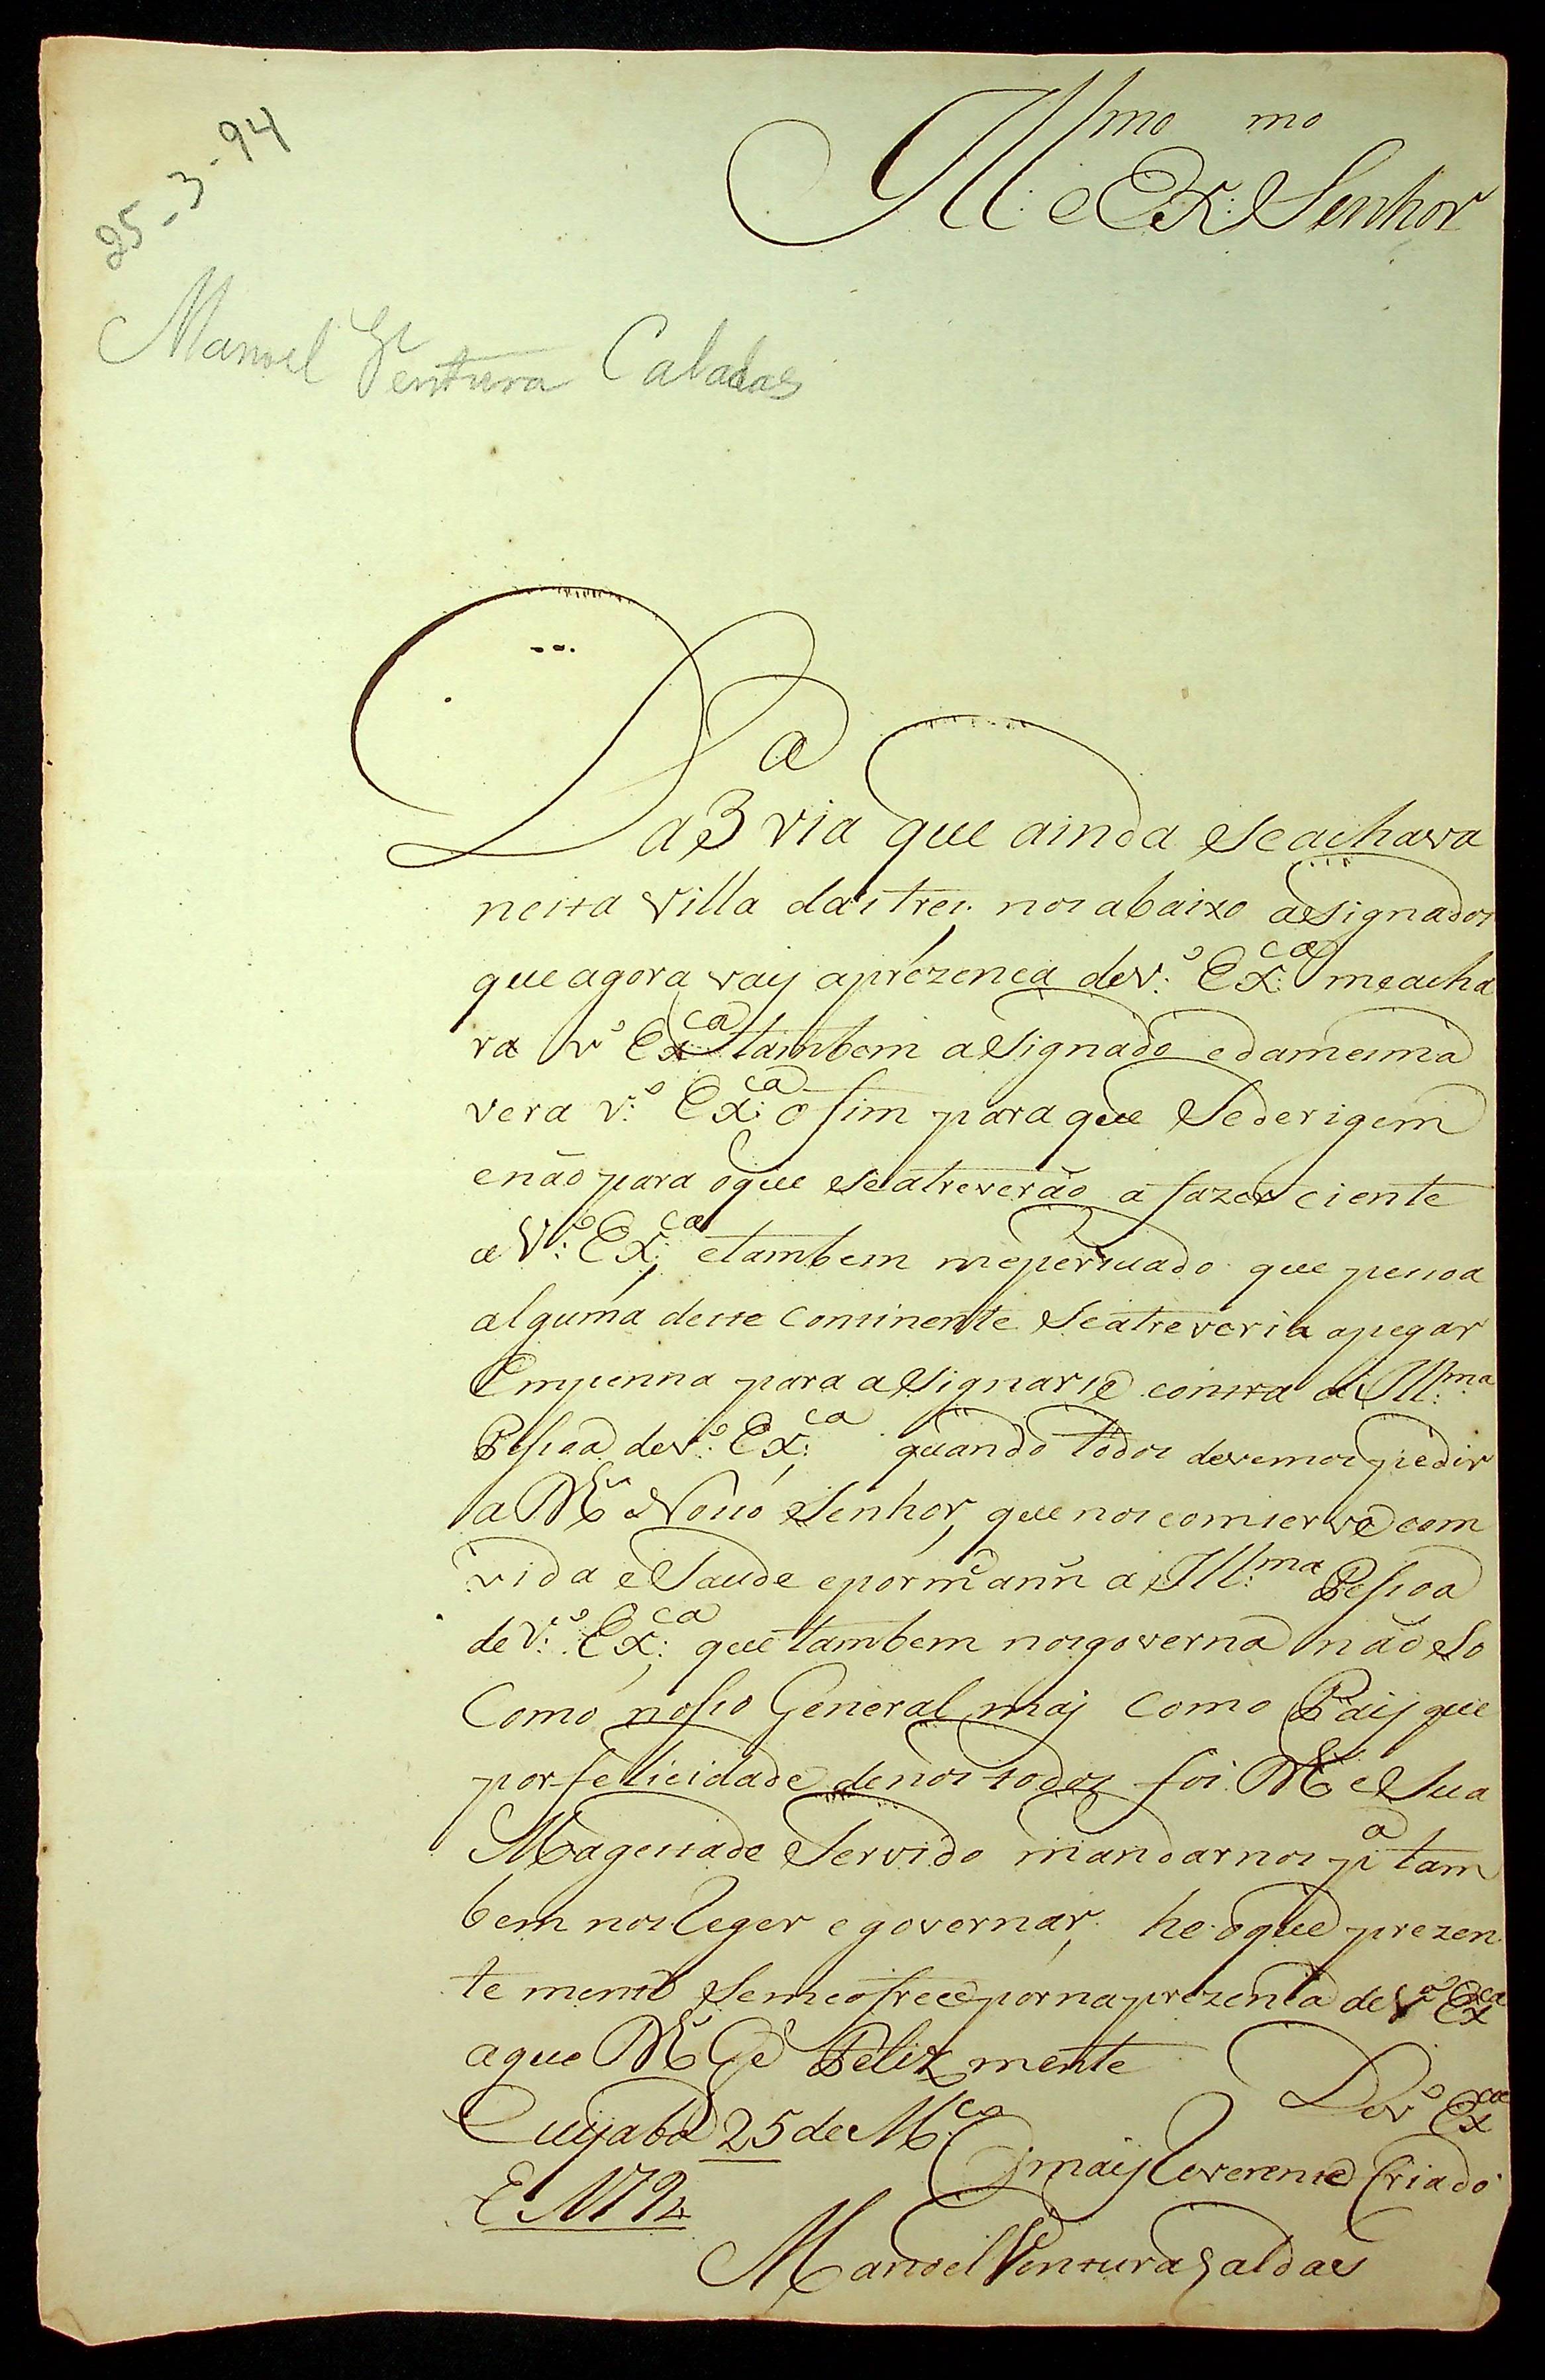 25-3-94
Manoel Ventura Caladas
Ill.mo e Ex.mo Senhor
Da 3.a via que ainda se achava
nesta Villa das tres. nos abaixo asignados
que agora vay aprezenca de V.a Ex.ca me acha
ra V.a Ex.ca tambem asignado edamesma
vera V.a Ex.ca o fim para que Se derigem
enão para oque seatreverão a fazer ciente
a V.a Ex.ca etambem mepersuado que pessoa
alguma desse Continente Seatreveria apegar
Empenna para asignarse contra a Ill.ma
Pessoa de V.a Ex.ca quando todos devemos pedir
a D.s Nosso Senhor, que nos comserve com
vida e Saude epor a Ill.ma Pessoa
de V.a Ex.ca que tambem nosgoverna não So
Como nosso General may como Pay que
por felicidade denos todos foi D.s e Sua
Magestade Servido mandarnos p.a tam
bem nos Reger e governar, he oque prezen
te mente Semeofrece por naprezenca de V.a Ex.ca
aque D.s G.e Feliz mente
De V.a Ex.ca
Cuyaba 25 de M.co
E 1794
O may Reverente Criado
Manoel Ventura Caldas